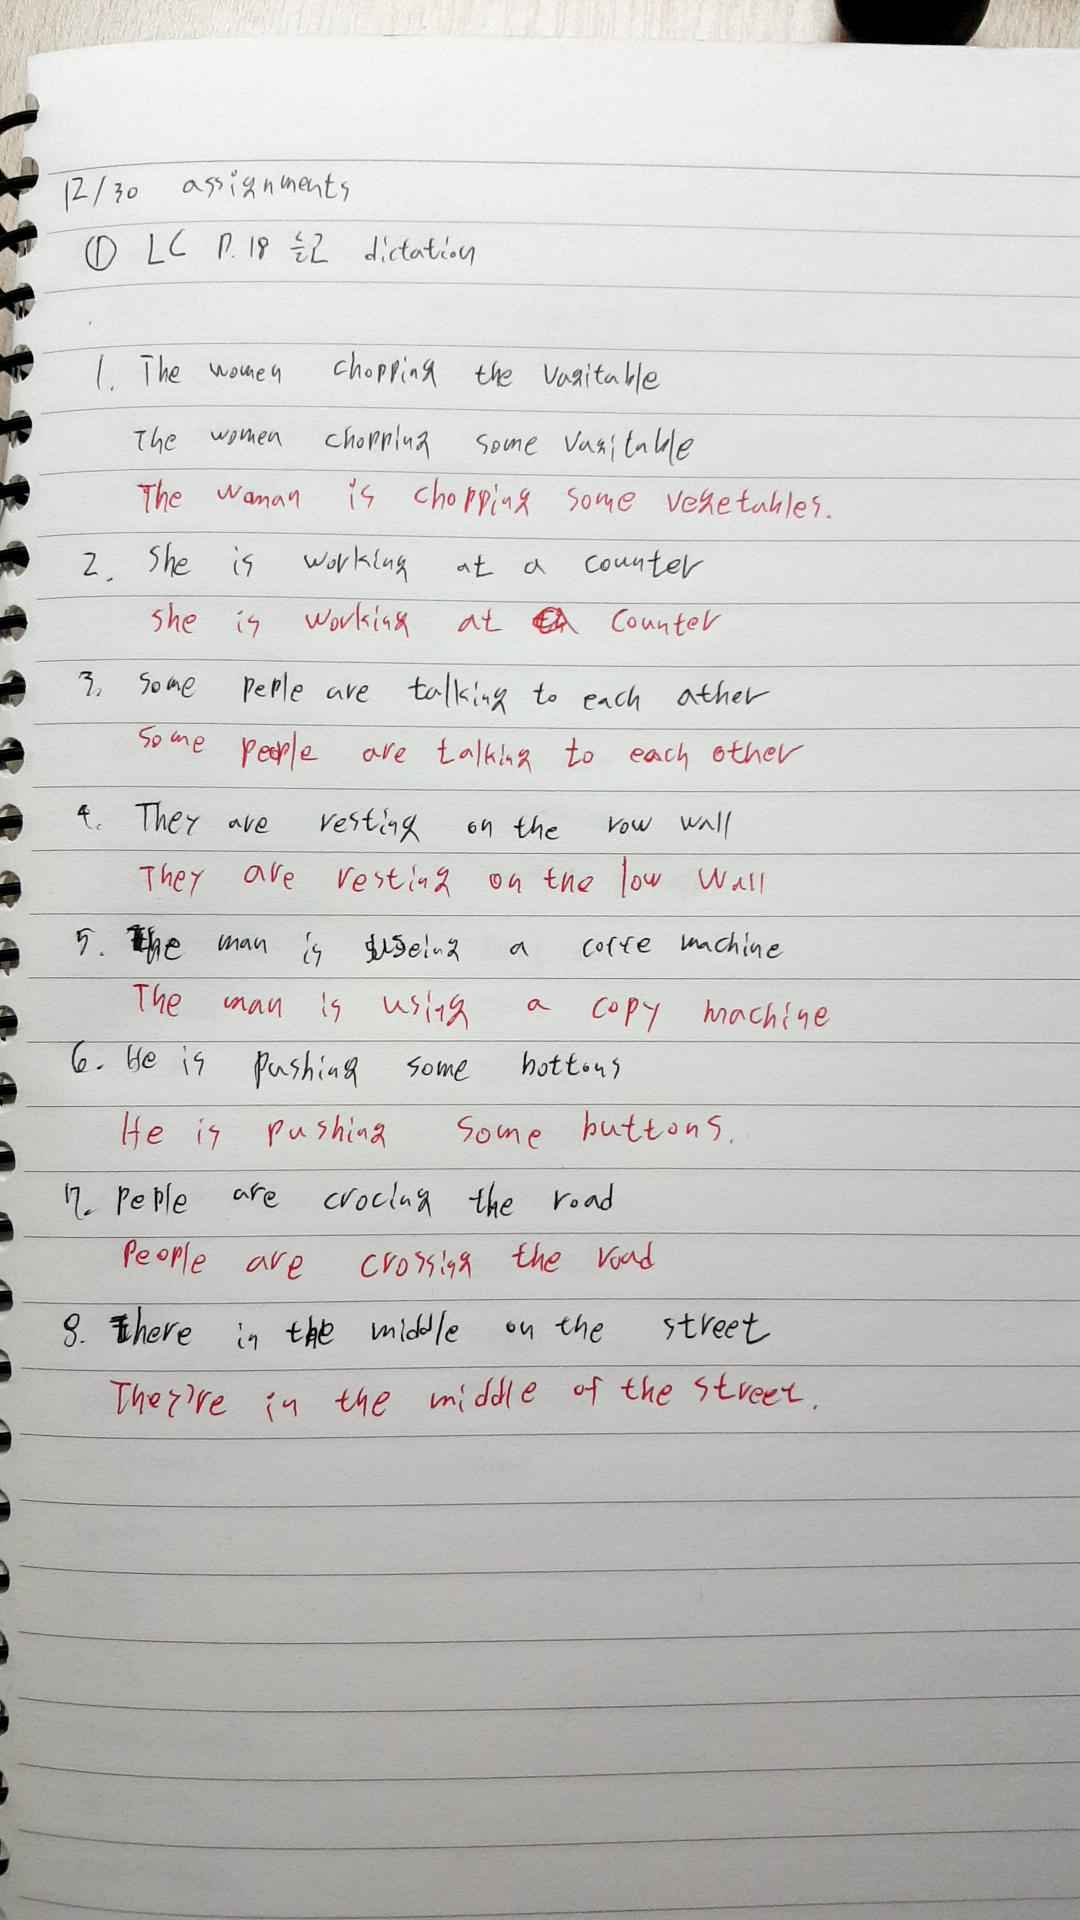 12/30 assignments
① LC P.18 dictation
1. The women chopping the vagitable
The women chopping some vagitable
The woman is chopping some vegetables.
2. She is working at a counter
She is working at a counter
3. Some peple are talking to each ather
Some people are talking to each other
4. They are resting on the row wall
They are resting on the low wall
5. The man is useing a machine
The man is using a copy machine
6. He is pushing some bottons
He is pushing some buttons.
7. Peple are crocing the road
People are crossing the road
8. There in the middle on the street
They're in the middle of the street.